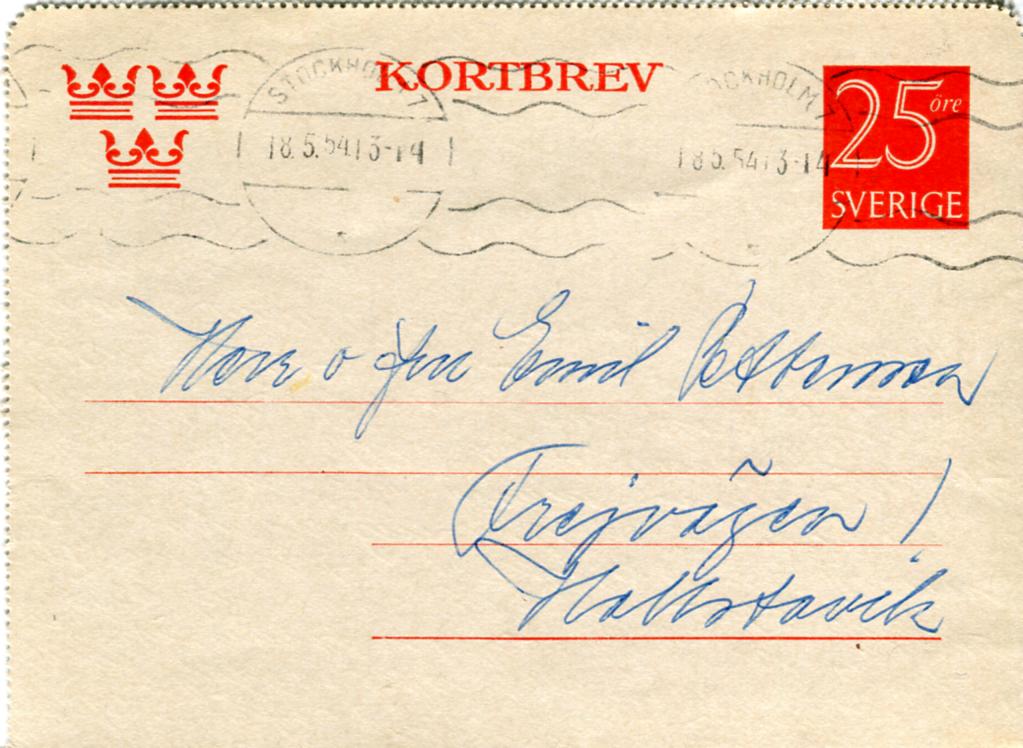 KORTBREV
STOCKHOLM 7
18.5.54.13-14
STOCKHOLM 7
18.5.54.13-14
25 öre
SVERIGE
Herr o fru Emil Pettersson
Frejvägen 1
Hallstavik